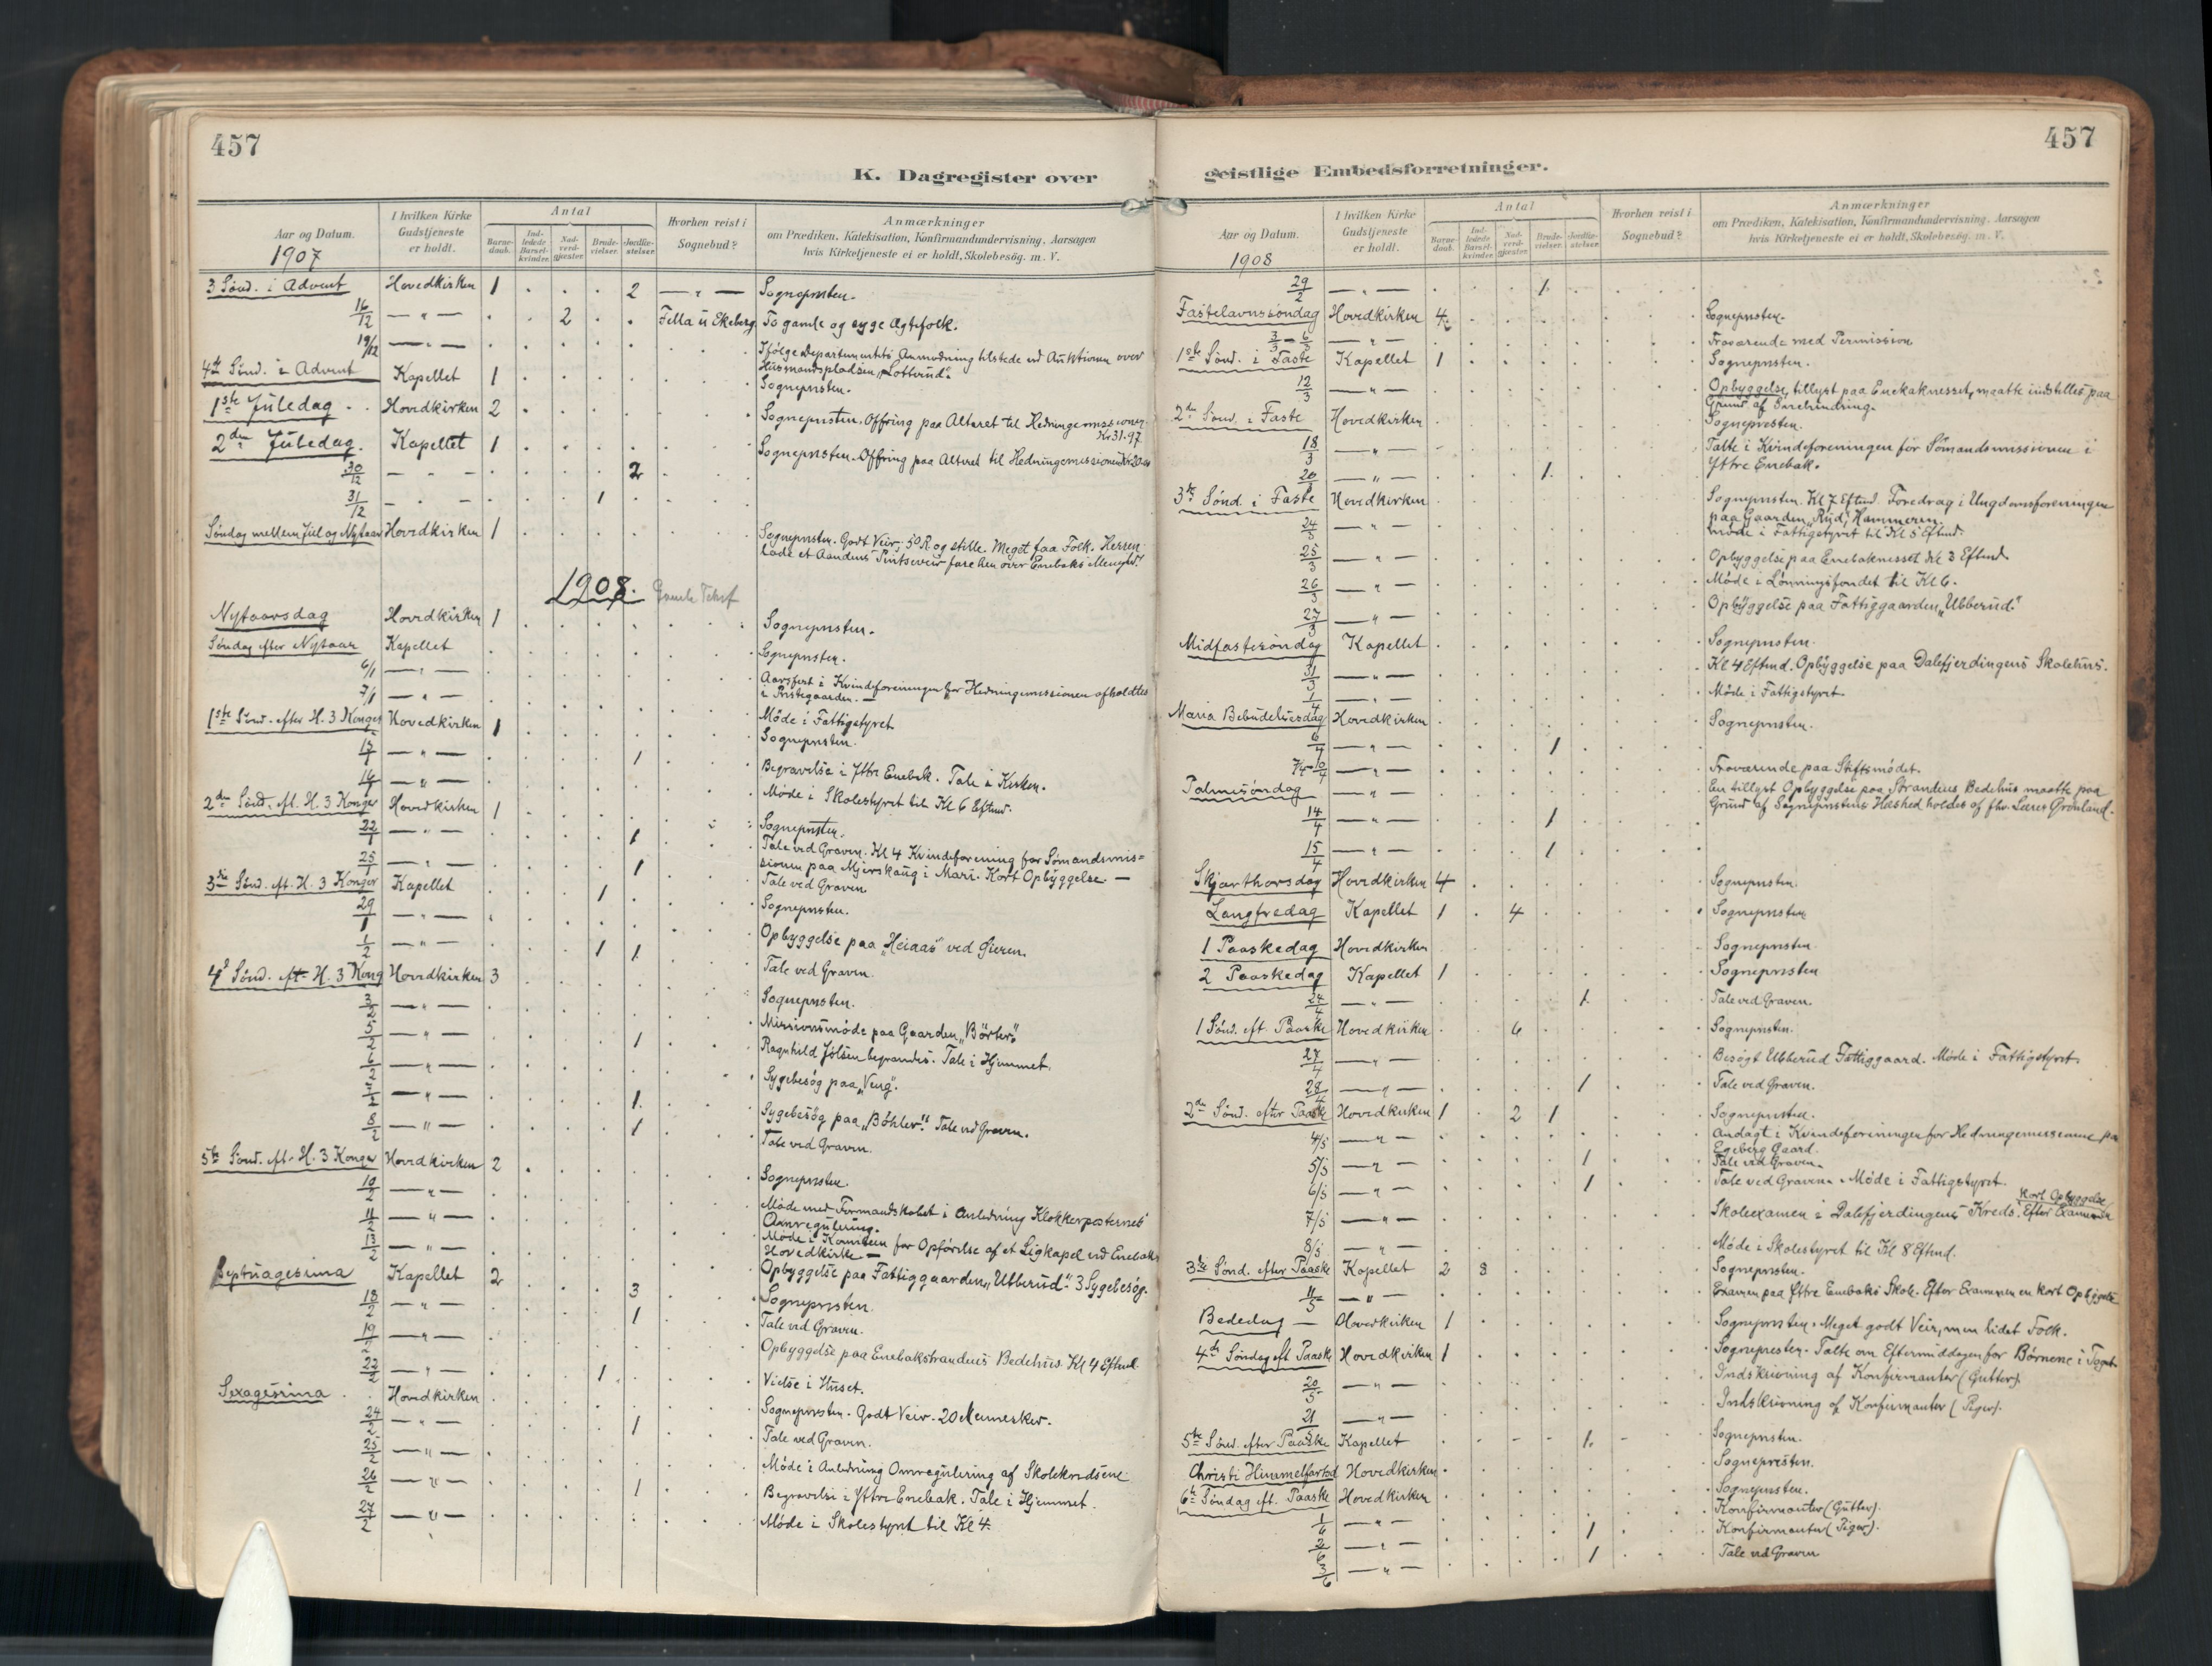 457
K. Dagregister over
Aar og Datum.
1907
I hvilken Kirke Gudstjeneste er holdt.
Antal
Barnedaab.
Indledede Barselkvinder.
Nadverdgjester.
Brudevielser.
Jordfæstelser.
Hvorhen reist i Sognebud?
Anmærkninger
om Prædiken, Katekisation, Konfirmandundervisning, Aarsagen
hvis Kirketjeneste ei er holdt, Skolebesög. m. V.
3 Sönd. i Advent Hovedkirken 1 2 — " — Sognepresten.
16/12 — " — 2 Fella u Ekeberg To gamle og syge Ægtefolk.
19/12 — " — Ifölge Departementets Anmodning tilstede ved Auktionen over
Husmandspladsen „Lotterud".
4de Sönd. i Advent Kapellet 1 Sognepresten.
1ste Juledag Hovedkirken 2 Sognepresten. Offring paa Alteret til Hedningemissionen
Kr. 31.97
2den Juledag. Kapellet 1 Sognepresten. Offring paa Alteret til Hedningemissionen
30/12 — " — 2
31/12 — " — 1
Söndag mellem Jul og Nytaar Hovedkirken 1 Sognepresten. Godt Veir, 5° R og stille. Meget faa Folk. Herren
lade et Aandens Pintseveir fare hen over Enebaks Menighed.
1908.
Nytaarsdag Hovedkirken 1 Sognepresten.
Söndag efter Nytaar Kapellet Sognepresten.
6/1 — " — Aarsfest i Kvindeforeningen for Hedningemissionen afholdtes
i Prestegaarden. —
7/1 — " — Möde i Fattigstyret
1ste Sönd. efter H. 3 Konger Hovedkirken 1 Sognepresten.
— " — 1 Begravelse i Ytre Enebak. Tale i Kirken.
— " — Möde i Skolestyret til Kl 6 Eftmd.
2den Sönd. eft. H. 3 Konger Hovedkirken 1 Sognepresten.
22/1 — " — 1 Tale ved Graven. Kl 4 Kvindeforening for Sömandsmis=
sionen paa Mjerskaug i Mari. Kort Opbyggelse —
25/1 — " — 1 Tale ved Graven
3die Sönd. eft. H. 3 Konger Kapellet 1 Sognepresten.
29/1 — " — Opbyggelse paa „Heiaas" ved Öieren.
1/2 — " — 1 1 Tale ved Graven.
4de Sönd. eft. H. 3 Kong Hovedkirken 3 Sognepresten.
3/2 — " — Missionsmöde paa Gaarden „Börter".
5/2 — " — 1 Ragnhild Jölsen begravdes. Tale i Hjemmet.
6/2 — " — Sygebesög paa „Veng".
7/2 — " — 1 Sygebesög paa „Böhler". Tale ved Graven.
8/2 — " — 1 Tale ved Graven.
5te Sönd. eft. H. 3 Konger Hovedkirken 2 Sognepresten.
10/2 — " — Möde med Formandskabet i Anledning Klokkerposternes
Omregulering.
11/2 — " — Möde i Komiteen for Opförelse af et Ligkapel ved Enebaks
Hovedkirke —
13/2 — " — Opbyggelse paa Fattiggaarden „Ubberud". 3 Sygebesög.
Septuagesima Kapellet 2 3 Sognepresten.
18/2 — " — 1 Tale ved Graven.
19/2 — " — Opbyggelse paa Enebakstrandens Bedehus Kl 4 Eftmd.
22/2 — " — 1 Vielse i Huset.
Sexagesima Hovedkirken Sognepresten. Godt Veir. 20 Mennesker.
24/2 — " — 1 Tale ved Graven.
25/2 — " — Möde i Anledning Omregulering af Skolekredsene
26/2 — " — 1 Begravelse i Ytre Enebak. Tale i Hjemmet.
27/2 — " — Möde i Skolestyret til Kl 4.
457
geistlige Embedsforretninger.
Aar og Datum.
1908
I hvilken Kirke Gudstjeneste er holdt.
Antal
Barnedaab.
Indledede Barselkvinder.
Nadverdgjester.
Brudevielser.
Jordfæstelser.
Hvorhen reist i Sognebud?
Anmærkninger
om Prædiken, Katekisation, Konfirmandundervisning, Aarsagen
hvis Kirketjeneste ei er holdt, Skolebesög. m. V.
29/2 — " — 1
Fastelavnssöndag Hovedkirken 4 Sognepresten.
3/3 – 6/3 — " — Fraværende med Permission.
1ste Sönd. i Faste Kapellet 1 Sognepresten.
12/3 — " — Opbyggelse, tillyst paa Enebaknesset, maatte indstilles paa
Grund af Snehindring.
2den Sönd. i Faste Hovedkirken Sognepresten.
18/3 — " — Talte i Kvindeforeningen for Sömandsmissionen i
Yttre Enebak.
20/3 — " — 1
3die Sönd. i Faste Hovedkirken Sognepresten. Kl 7 Eftmd. Foredrag i Ungdomsforeningen
paa Gaarden „Ryd", Hammeren.
24/3 — " — Möde i Fattigstyret til Kl 5 Eftmd.
25/3 — " — Opbyggelse paa Enebaknesset Kl 3 Eftmd.
26/3 — " — Möde i Lönningsfondet til Kl 6.
27/3 — " — Opbyggelse paa Fattiggaarden „Ubberud."
Midfastesöndag Kapellet Sognepresten.
31/3 — " — Kl 4 Eftmd. Opbyggelse paa Dalefjerdingens Skolehus.
1/4 — " — Möde i Fattigstyret.
Maria Bebudelsesdag Hovedkirken Sognepresten.
6/4 — " — 1
7/4–10/4 — " — Fraværende paa Stiftsmödet.
Palmesöndag — " — En tillyst Opbyggelse paa Strandens Bedehus maatte paa
Grund af Sogneprestens Hæshed holdes af fhv. Lærer Grönland.
14/4 — " — 1
15/4 — " — 1
Skjærthorsdag Hovedkirken 4 Sognepresten.
Langfredag Kapellet 1 4 Sognepresten
1 Paaskedag Hovedkirken Sognepresten
2 Paaskedag Kapellet 1 Sognepresten
24/4 — " — 1 Tale ved Graven.
1 Sönd. eft. Paaske Hovedkirken 6 Sognepresten.
27/4 — " — Besögt Ubberud Fattiggaard. Möde i Fattigstyret.
28/4 — " — 1 Tale ved Graven.
2den Sönd. efter Paaske Hovedkirken 1 2 1 Sognepresten.
4/5 — " — Andagt i Kvindeforeningen for Hedningemissionen paa
Egeberg Gaard.
5/5 — " — 1 Tale ved Graven.
6/5 — " — 1 Tale ved Graven. Möde i Fattigstyret.
7/5 — " — Skoleexamen i Dalefjerdingens Kreds. Efter Examenen
Kort Opbyggelse
8/5 — " — Möde i Skolestyret til Kl 8 Eftmd.
3die Sönd. efter Paaske Kapellet 2 8 Sognepresten.
11/5 — " — Examen paa Yttre Enebaks Skole. Efter Examenen en kort Opbyggelse
Bededag — Hovedkirken 1 Sognepresten. Meget godt Veir, men lidet Folk.
4de Söndag eft Paaske Hovedkirken 1 Sognepresten. Talte om Eftermiddagen for Börnene i
20/5 — " — Indskrivning af Konfirmanter (Gutter).
21/5 — " — Indskrivning af Konfirmanter (Piger).
5te Sönd. efter Paaske Kapellet 1 Sognepresten.
Christi Himmelfartsd Hovedkirken Sognepresten.
6te Söndag eft. Paaske Hovedkirken Sognepresten.
1/6 — " — Konfirmanter (Gutter).
2/6 — " — 1 Konfirmanter (Piger).
3/6 — " — 1 Tale ved Graven